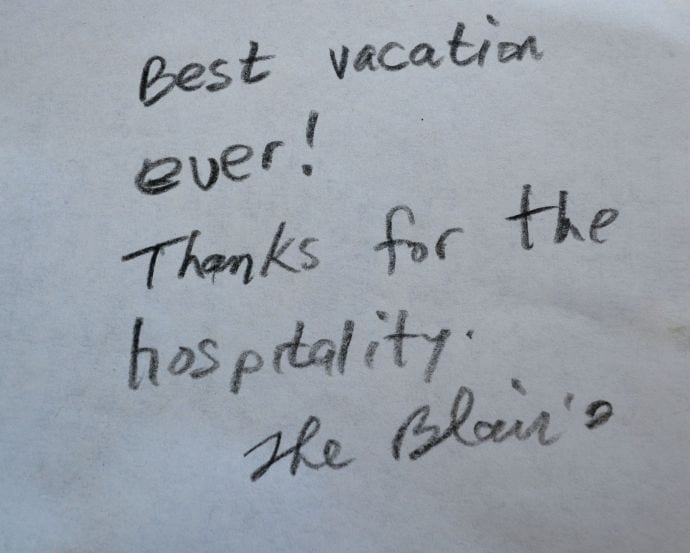 Best vacation
ever!
Thanks for the
hospitality.
The Blair's